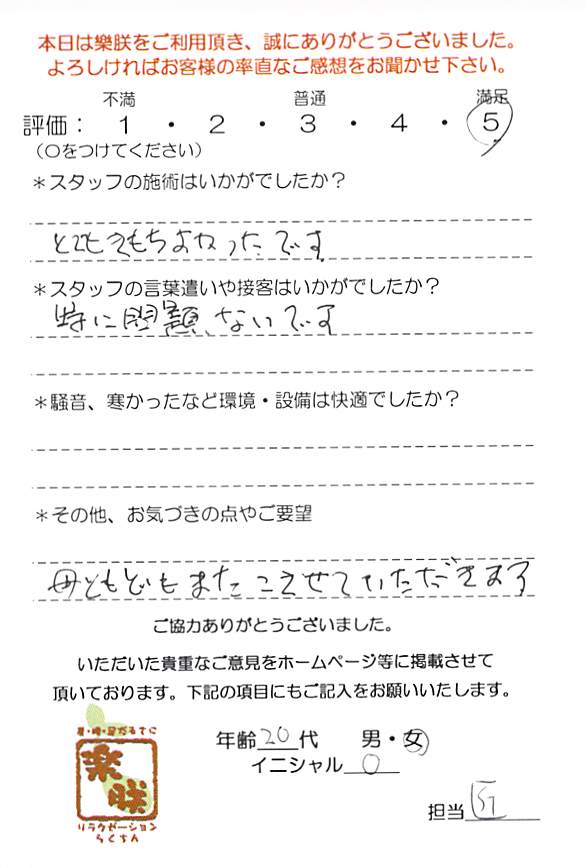 本日は樂朕をご利用頂き、誠にありがとうございました。
よろしければお客様の率直なご感想をお聞かせ下さい。
不満 普通 満足
評価： 1 ・ 2 ・ 3 ・ 4 ・ 5
（○をつけてください）
＊スタッフの施術はいかがでしたか？
とてもきもちよかったです
＊スタッフの言葉遣いや接客はいかがでしたか？
特に問題ないです
＊騒音、寒かったなど環境・設備は快適でしたか？
＊その他、お気づきの点やご要望
母ともどもまたこさせていただきます
ご協力ありがとうございました。
いただいた貴重なご意見をホームページ等に掲載させて
頂いております。下記の項目にもご記入をお願いいたします。
年齢 20 代 男・女
イニシャル O
担当
樂朕
リラクゼーション
らくちん